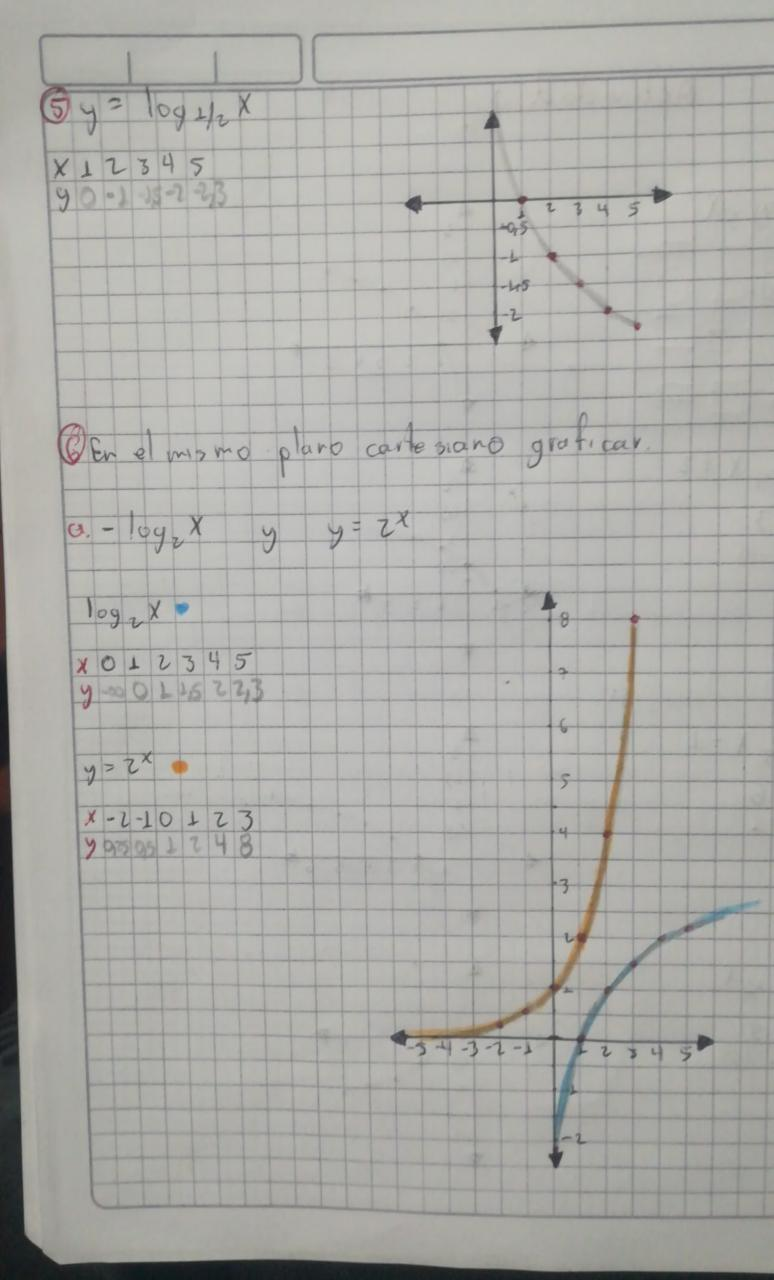 ⑤ y = log 1/2 x
x 1 2 3 4 5
y 0 -1 -1,5 -2 -2,3
1 2 3 4 5
-0,5
-1
-1,5
-2
⑥ En el mismo plano cartesiano graficar.
a. - log₂ x y y = 2ˣ
log₂ x
x 0 1 2 3 4 5
y -∞ 0 1 1,5 2 2,3
y = 2ˣ
x -2 -1 0 1 2 3
y 0,25 0,5 1 2 4 8
8
7
6
5
4
3
2
1
-5 -4 -3 -2 -1 1 2 3 4 5
-1
-2